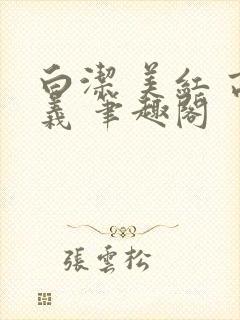 白潔 美紅 高
義 筆趣閣
張雲松